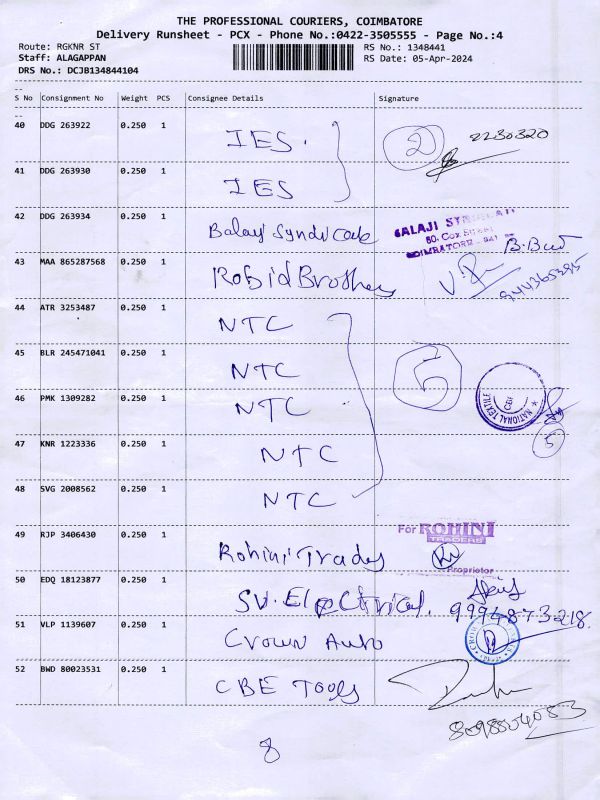 THE PROFESSIONAL COURIERS, COIMBATORE
Delivery Runsheet - PCX - Phone No.:0422-3505555 - Page No.:4
Route: RGKNR ST
RS No.: 1348441
Staff: ALAGAPPAN
RS Date: 05-Apr-2024
DRS No.: DCJB134844104
S No Consignment No Weight PCS Consignee Details Signature
40 DDG 263922 0.250 1 IES. 2 2230320
41 DDG 263930 0.250 1 IES
42 DDG 263934 0.250 1 Balaji Syndicate BALAJI
COIMBATORE
43 MAA 865287568 0.250 1 Brothers
44 ATR 3253487 0.250 1 NTC
45 BLR 245471041 0.250 1 NTC 5
46 PMK 1309282 0.250 1 NTC NATIONAL TEXTILE CBE
47 KNR 1223336 0.250 1 NTC 5
48 SVG 2008562 0.250 1 NTC
49 RJP 3406430 0.250 1 Rohini Trades For ROHINI
TRADERS
Proprietor
50 EDQ 18123877 0.250 1 SV. Electrical. 9994873218
51 VLP 1139607 0.250 1 Crown Auto
52 BWD 80023531 0.250 1 CBE Tools
8098504053
8